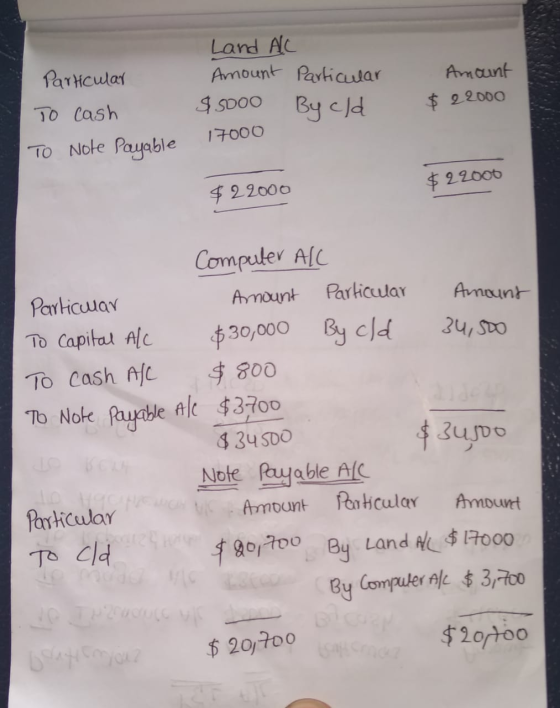 Land A/C
Particular Amount Particular Amount
To Cash $5000 By c/d $ 22000
To Note Payable 17000
$22000 $22000
Computer A/C
Particular Amount Particular Amount
To Capital A/C $30,000 By c/d 34,500
To Cash A/C $ 800
To Note Payable A/C $3,700
$34500 $34,500
Note Payable A/C
Particular Amount Particular Amount
To C/d $20,700 By Land A/C $17000
By Computer A/C $ 3,700
$20,700 $20,700